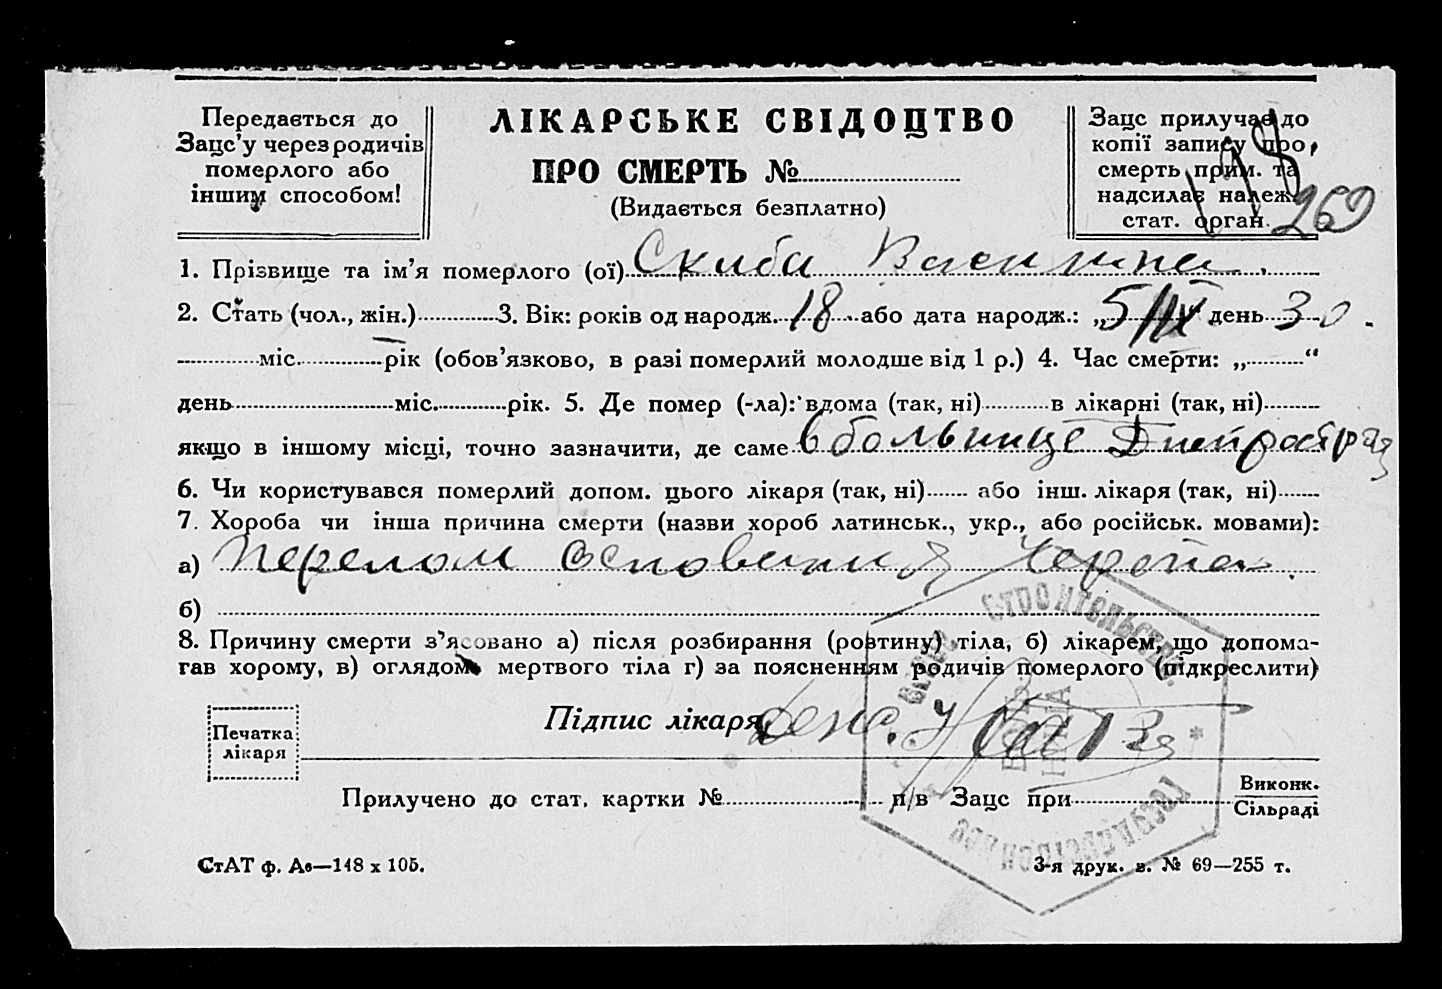 Передається до
Зацс'у через родичів
померлого або
іншим способом!
ЛІКАРСЬКЕ СВІДОЦТВО
ПРО СМЕРТЬ №
(Видається безплатно)
Зацс прилучає до
копії запису про
смерть прим. та
надсилає належ.
стат. орган.
178
269
1. Прізвище та ім'я померлого (ої) Скиба
2. Стать (чол., жін.) 3. Вік: років од народж. 18 або дата народж.: „5/IX день 30
міс. рік (обов'язково, в разі померлий молодше від 1 р.) 4. Час смерти: „ “
день міс. рік. 5. Де помер (-ла): вдома (так, ні) в лікарні (так, ні)
якщо в іншому місці, точно зазначити, де саме в больнице Днепростроя
6. Чи користувався померлий допом. цього лікаря (так, ні) або інш. лікаря (так, ні)
7. Хороба чи інша причина смерти (назви хороб латинськ., укр., або російськ. мовами):
а) Перелом основания черепа.
б)
8. Причину смерти з'ясовано а) після розбирання (розтину) тіла, б) лікарем, що допома-
гав хорому, в) оглядом мертвого тіла г) за поясненням родичів померлого (підкреслити)
Підпис лікаря
Печатка
лікаря
Прилучено до стат. картки № п/в Зацс при Виконк.
Сільраді
СтАТ ф. А6—148 х 105.
3-я друк. з. № 69—255 т.
Строительство
Государственное